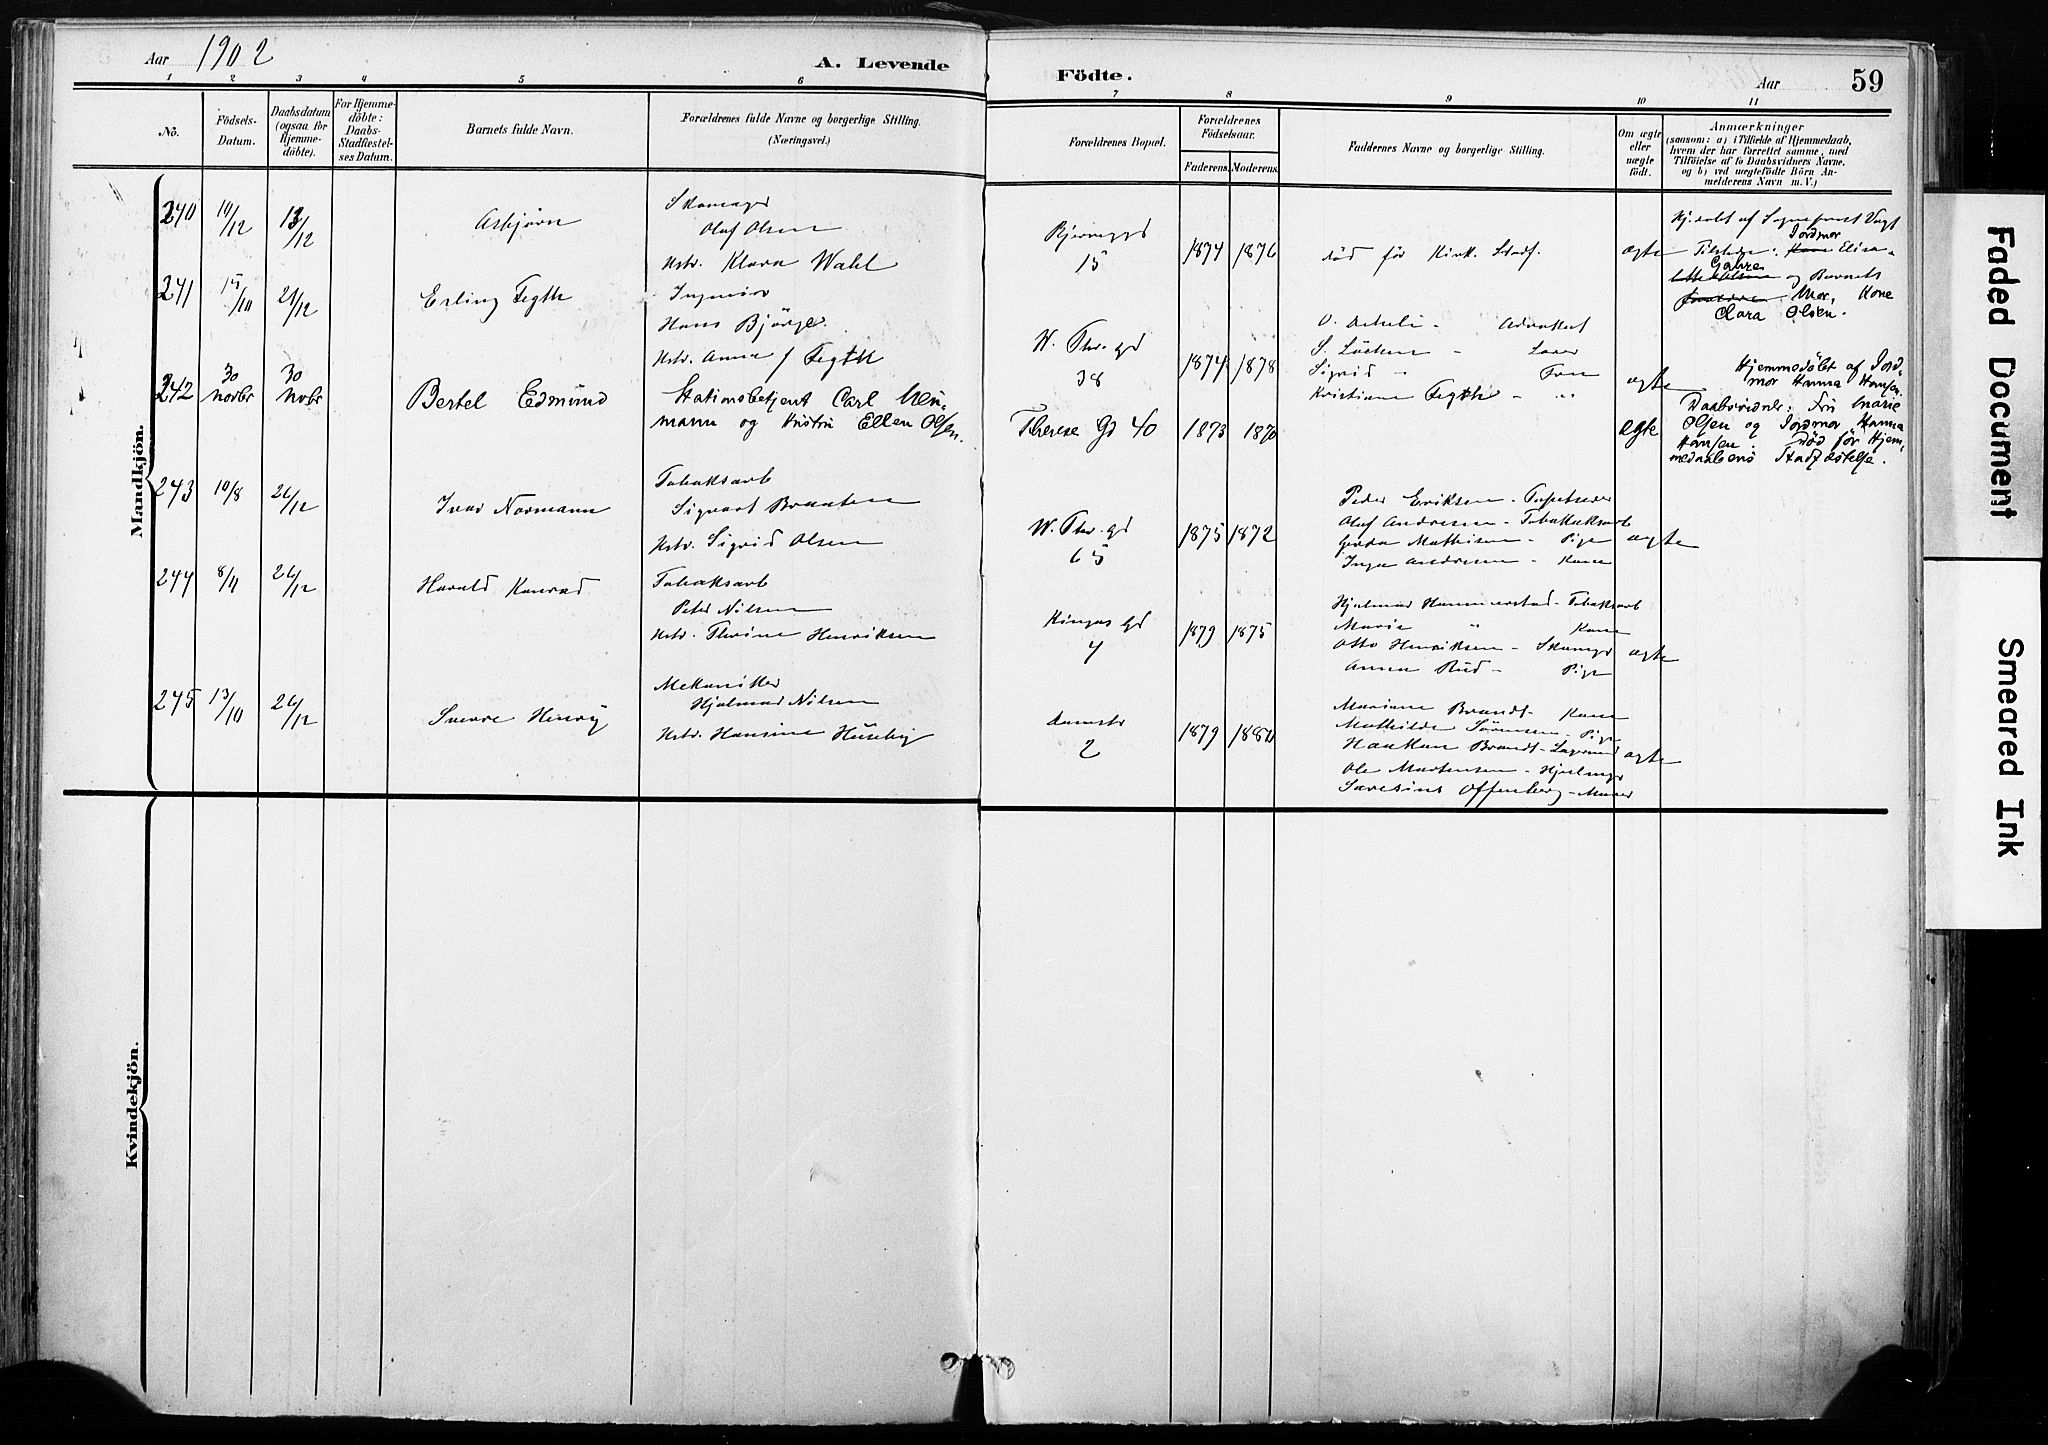 Aar 1902
A. Levende
Födte.
Aar
59
1 2 3 4 5 6 7 8 9 10 11
No.
Födsels-
Datum.
Daabsdatum
(ogsaa for
Hjemme-
döbte).
For Hjemme-
döbte:
Daabs-
Stadfæstel-
ses Datum.
Barnets fulde Navn.
Forældrenes fulde Navne og borgerlige Stilling.
(Næringsvei.)
Forældrenes Bopæl.
Forældrenes
Födselsaar.
Faderens. Moderens.
Faddernes Navne og borgerlige Stilling.
Om ægte
eller
uægte
födt.
Anmærkninger
(saasom: a) i Tilfælde af Hjemmedaab,
hvem der har forrettet samme, med
Tilföielse af to Daabsvidners Navne,
og b) ved uægtefödte Börn An-
melderens Navn m.V.)
Mandkjön.
240 10/12 13/12
Asbjørn
Skomager
Olaf Olsen
Hstr. Klara Wahl
15
1874 1876
død før Kirk. Stadf.
ægte
Hj.døbt af Sognepræst Vogt
Jordmor
Tilstede: Kone Elisa-
og Barnets
Mor, Kone
Clara Olsen.
241 15/10 21/12
Erling Fegth
Ingeniør
Hans Bjørge
Hstr. Anna f Fegth
W. Thr. gd
38
1874 1878
Advokat
S. Løchen
Sigrid " Frue
Kristiane Fegth - "
ægte
242 30 novbr 30 novbr
Bertel Edmund
Stationsbetjent Carl Neu-
mann og Hustru Ellen Olsen.
Therese Gd 40
1873 1870
ægte
Hjemmedøbt af Jord-
mor Hanna Hansen.
Daabsvidner: Fru Marie
Olsen og Jordmor Hanna
Hansen. Død før Hjem-
medaabens Stadfæstelse.
243 10/8 26/12
Ivar Normann
Tobaksarb
Sigvart Braaten
Hstr. Sigrid Olsen
W. Thr. gd
65
1875 1872
Peder Eriksen - Tapetserer
Olaf Andresen - Tobakksarb
Gerda Mathisen - Pige
Inga Andresen - Kone
ægte
244 8/11 26/12
Harald Konrad
Tobaksarb
Peter Nilsen
Hstr. Thrine Henriksen
Kingos Gd
4
1879 1875
Hjalmar Hammerstad - Tobaksarb
Marie " Kone
Otto Henriksen - Skomgr
Anna Rud - Pige
ægte
245 13/10 26/12
Sverre Henry
Mekaniker
Hjalmar Nilsen
Hstr. Hansine Huseby
Damstr
2
1879 1880
Mariane Brandt - Kone
Mathilde Sørensen - Pige
Haakon Brandt - Lagermand
Ole Martensen - Hjulmgr
Offenberg - Murer
ægte
Kvindekjön.
Faded Document
Smeared Ink